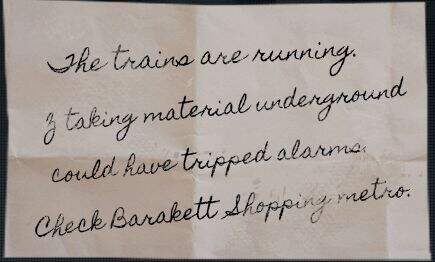 The trains are running.
Z taking material underground
could have tripped alarms.
Check Barakett Shopping metro.